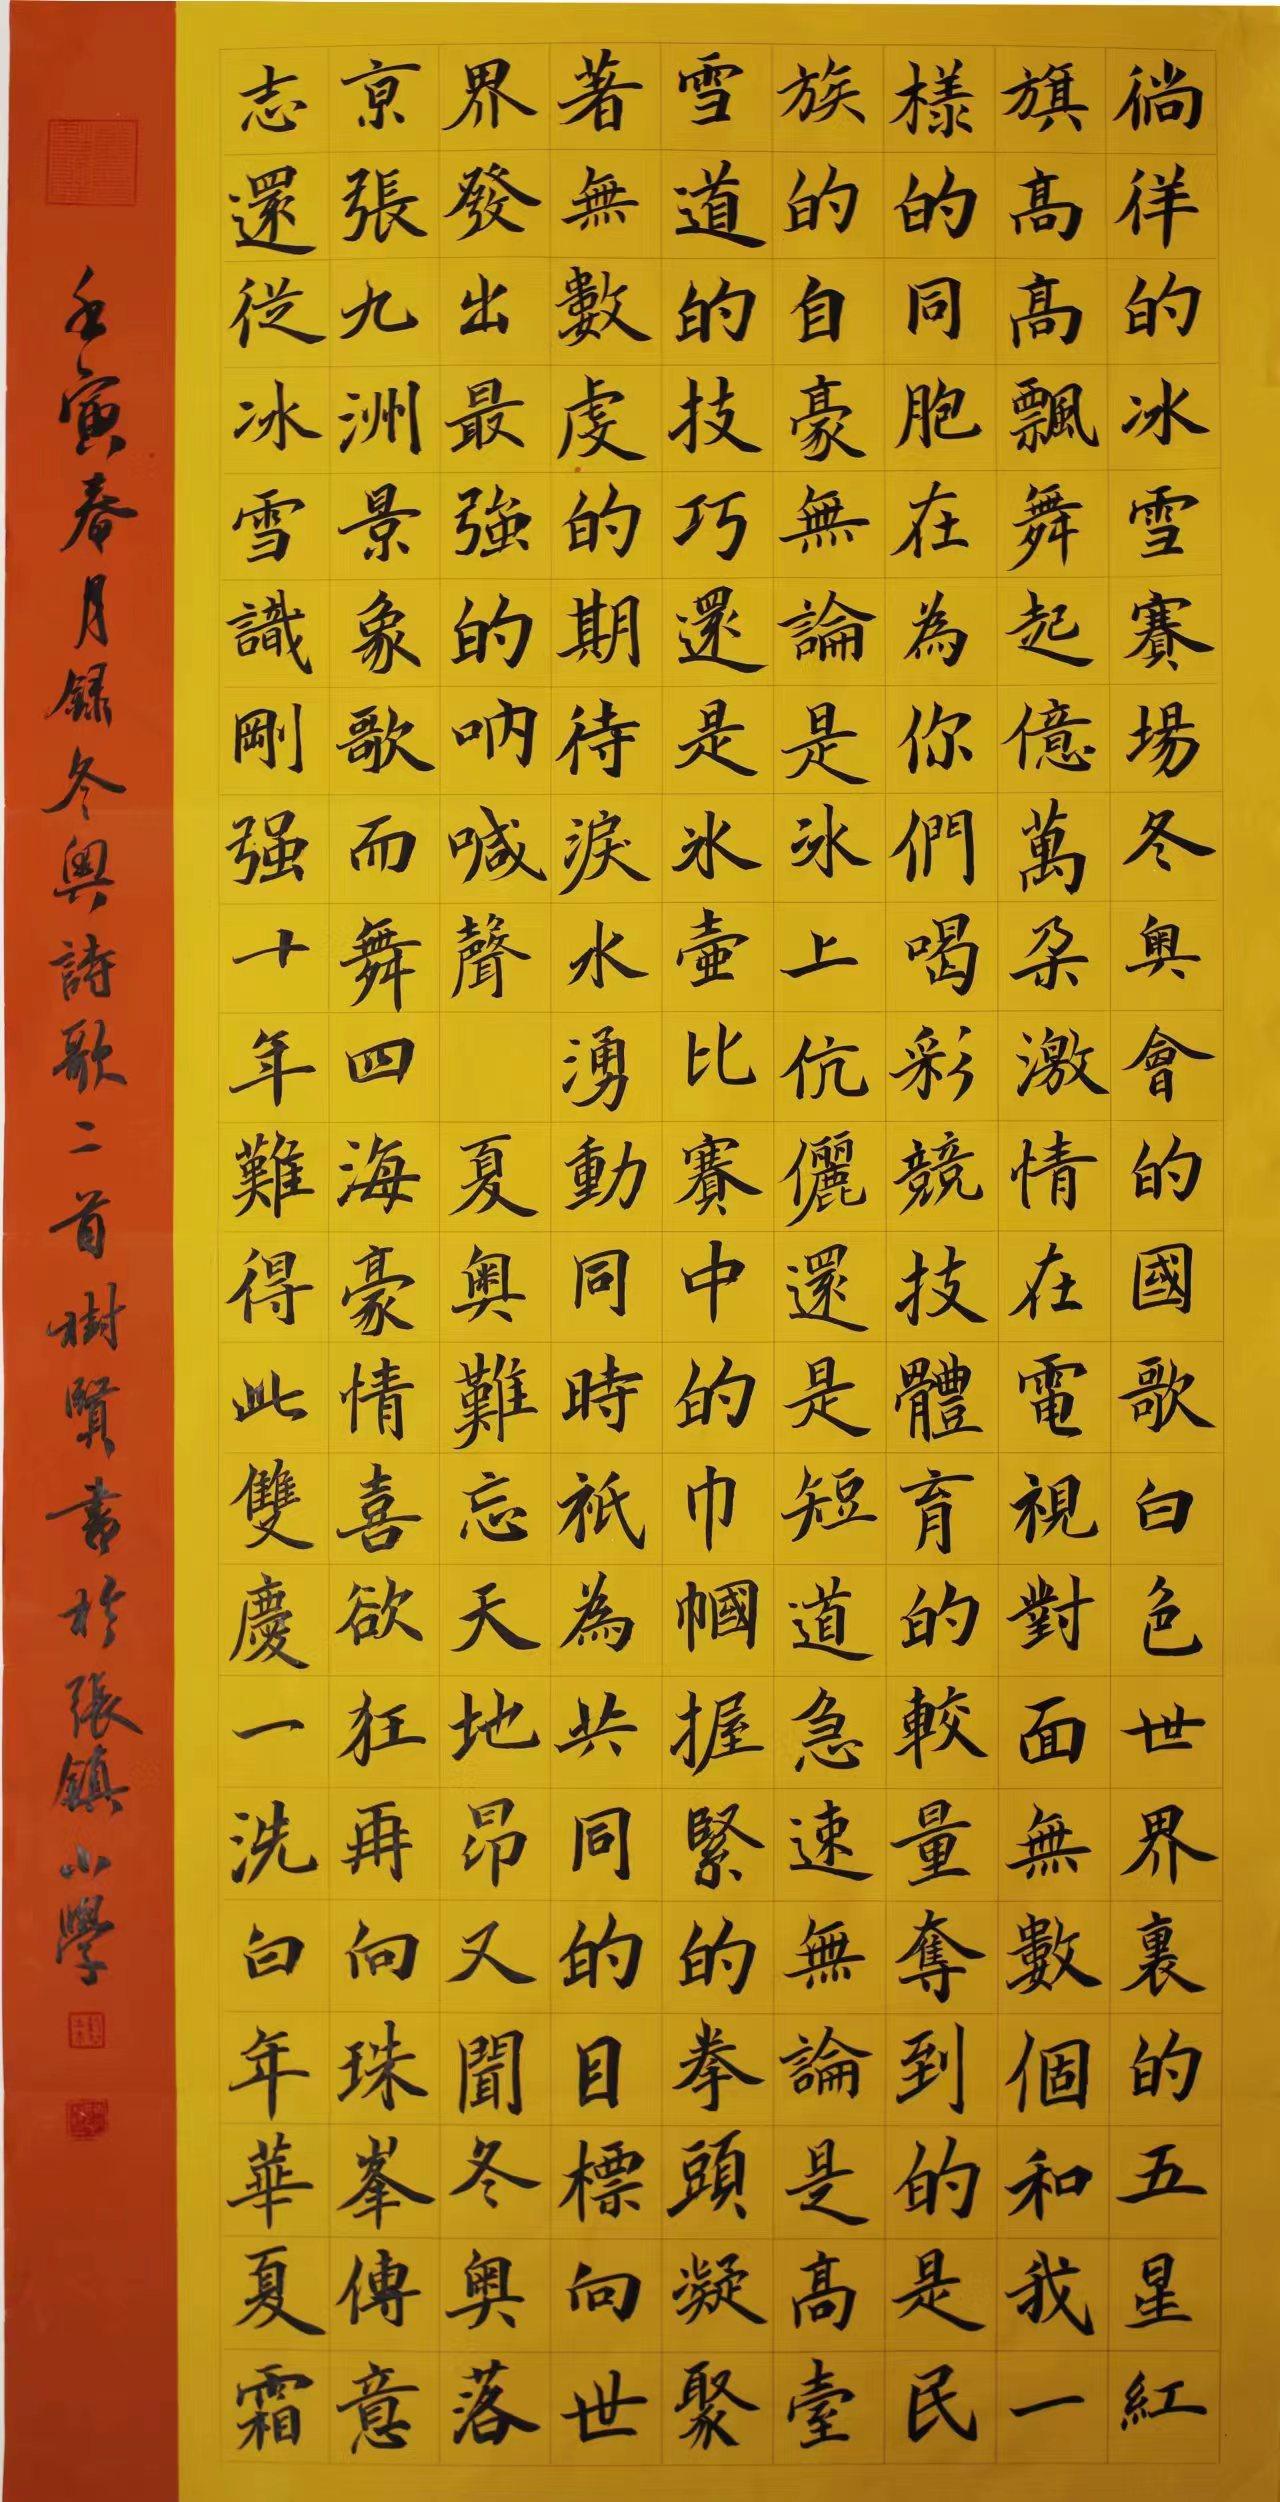 徜徉的冰雪賽場冬奥會的國歌白色世界裏的五星紅
旗高高飄舞起億萬朵激情在電視對面無數個和我一
樣的同胞在為你們喝彩競技體育的較量奪到的是民
族的自豪無論是冰上伉儷還是短道急速無論是高臺
雪道的技巧還是冰壺比賽中的巾幗握緊的拳頭凝聚
著無數虔的期待淚水湧動同時衹為共同的目標向世
界發出最強的吶喊聲 夏奥難忘天地昂又聞冬奥落
京張九洲景象歌而舞四海豪情喜欲狂再向珠峯傳意
志還從冰雪識剛强十年難得此雙慶一洗白年華夏霜
壬寅春月録冬奥詩歌二首樹賢書於張鎮小學